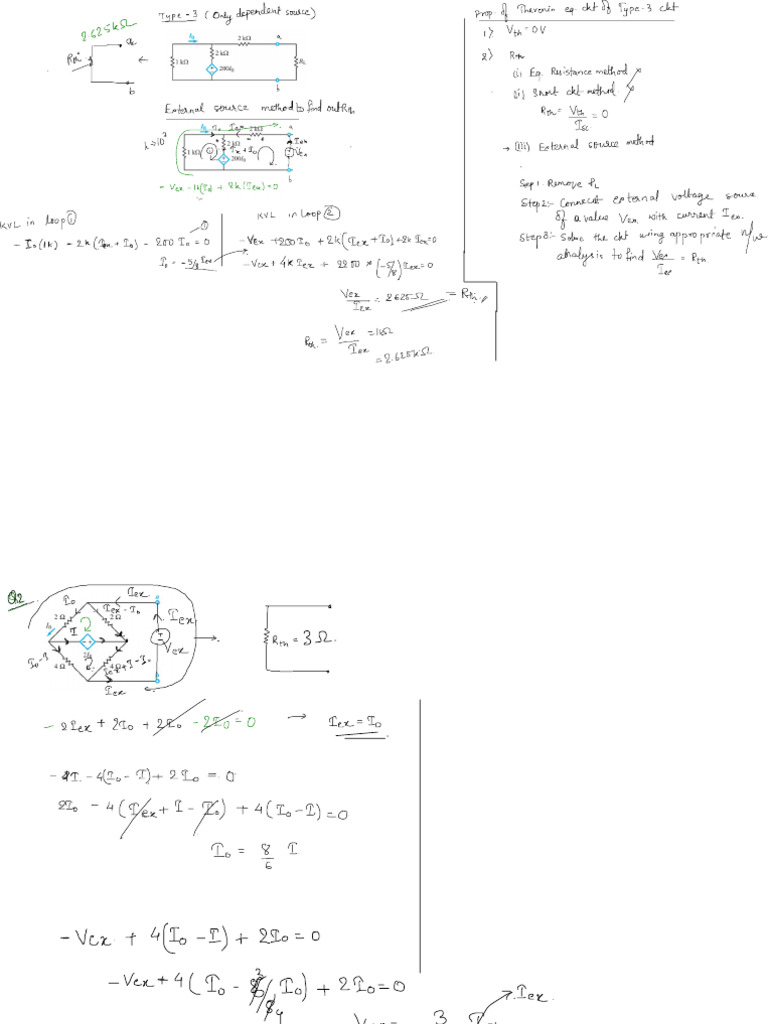 Type-3 (Only dependent source)
2.625kΩ
a
b
I₀
2 kΩ
a
1 kΩ
2 kΩ
200I₀
b
External source method to find out Rth
k → 10³
I₀
2 kΩ
a
1 kΩ
2 kΩ
Iex + I₀
200I₀
Iex
Vex
b
- Vex - 1k(I₀) + 2k(Iex) = 0
KVL in loop ①
- I₀(1k) - 2k(Iex + I₀) - 200 I₀ = 0
I₀ = -5/8 Iex
①
KVL in Loop ②
-Vex + 200I₀ + 2k(Iex + I₀) + 2k Iex = 0
-Vex + 4k Iex + 2200 * (-5/8) Iex = 0
Vex/Iex = 2625Ω = Rth
Rth = Vex/Iex
= 2.625kΩ
Prop. of Thevenin eq. ckt of Type-3 ckt
1) Vth = 0V
2) Rth
(i) Eq. Resistance method
(ii) Short ckt method
Rth = Vth/Isc = 0
→ (iii) External source method
Step 1. Remove RL
Step2:- Connecat external voltage source
of a value Vex with current Iex.
Step3:- Solve the ckt using appropriate n/w
analysis to find Vex/Iex = Rth
Q2
Iex
I₀
Iex - I₀
2Ω
2Ω
a
Iex
I
Vex
I₀ - I
4Ω
4Ω
Iex + I - I₀
b
Iex
Rth = 3Ω.
- 2Iex + 2I₀ + 2I₀ - 2I₀ = 0 → Iex = I₀
- 4(I₀ - I) + 2I₀ = 0
2I₀ - 4(Iex + I - I₀) + 4(I₀ - I) = 0
I₀ = 8/6 I
-Vex + 4(I₀ - I) + 2I₀ = 0
-Vex + 4(I₀ - 3/4 I₀) + 2I₀ = 0
Iex
3